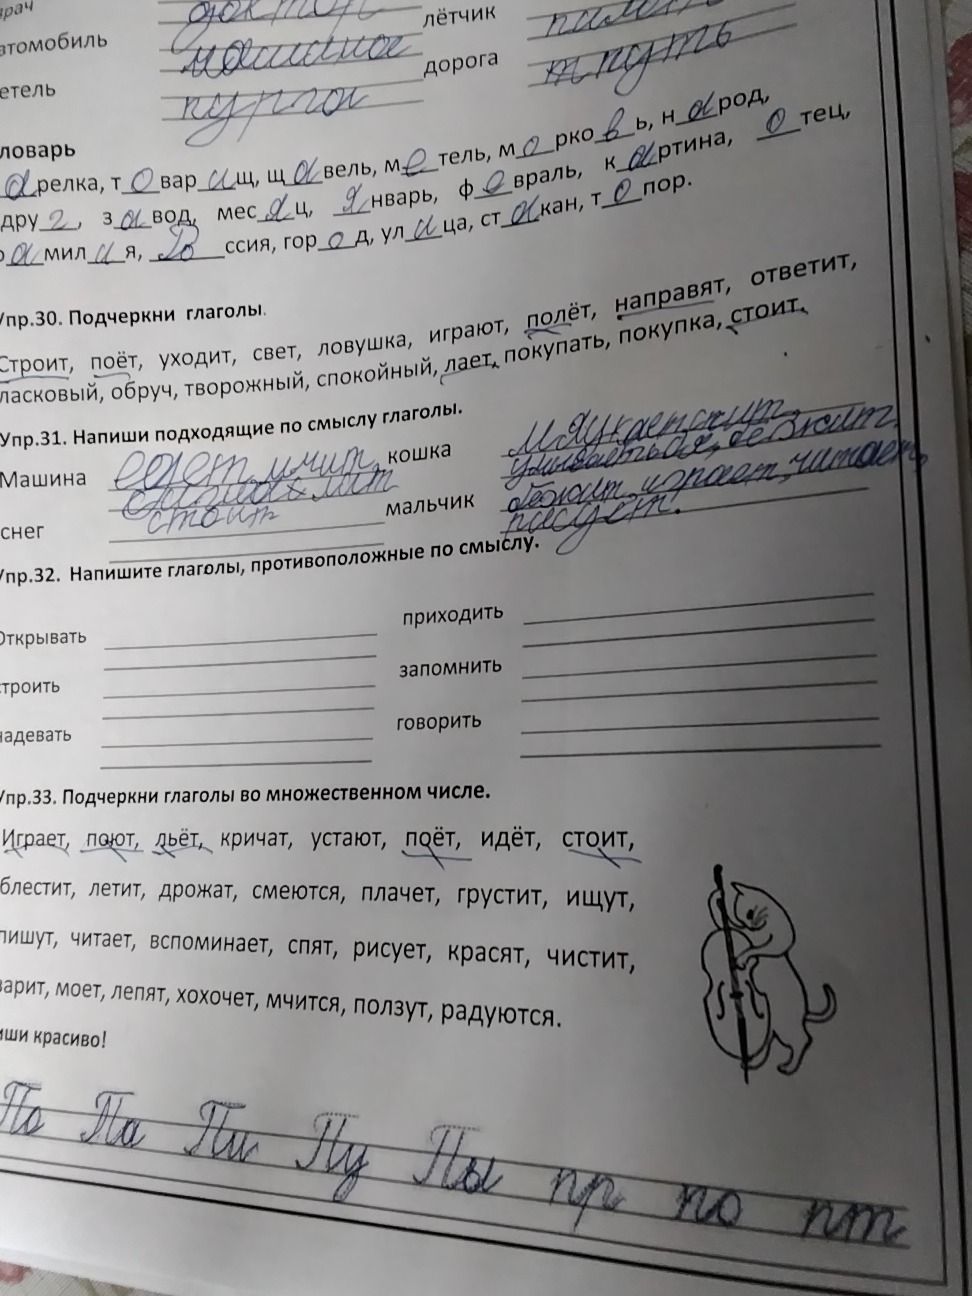 врач доктор лётчик пилот
втомобиль машина дорога путь
етель пурга
ловарь
арелка, т о вар и щ, щ а вель, м е тель, м о рко в ь, н а род,
дру г, з а вод, мес я ц, я нварь, ф е враль, к а ртина, о тец,
а мил и я, Ро ссия, гор о д, ул и ца, ст а кан, т о пор.
Упр.30. Подчеркни глаголы.
Строит, поёт, уходит, свет, ловушка, играют, полёт, направят, ответит,
ласковый, обруч, творожный, спокойный, лает, покупать, покупка, стоит.
Упр.31. Напиши подходящие по смыслу глаголы.
Машина едет, мчит, стоит кошка мяукает, спит
снег мальчик бежит, играет, читает, рисует.
Упр.32. Напишите глаголы, противоположные по смыслу.
Открывать приходить
троить запомнить
надевать говорить
Упр.33. Подчеркни глаголы во множественном числе.
Играет, поют, льёт, кричат, устают, поёт, идёт, стоит,
блестит, летит, дрожат, смеются, плачет, грустит, ищут,
пишут, читает, вспоминает, спят, рисует, красят, чистит,
варит, моет, лепят, хохочет, мчится, ползут, радуются.
иши красиво!
По Па Пи Пу Пы пр по пт